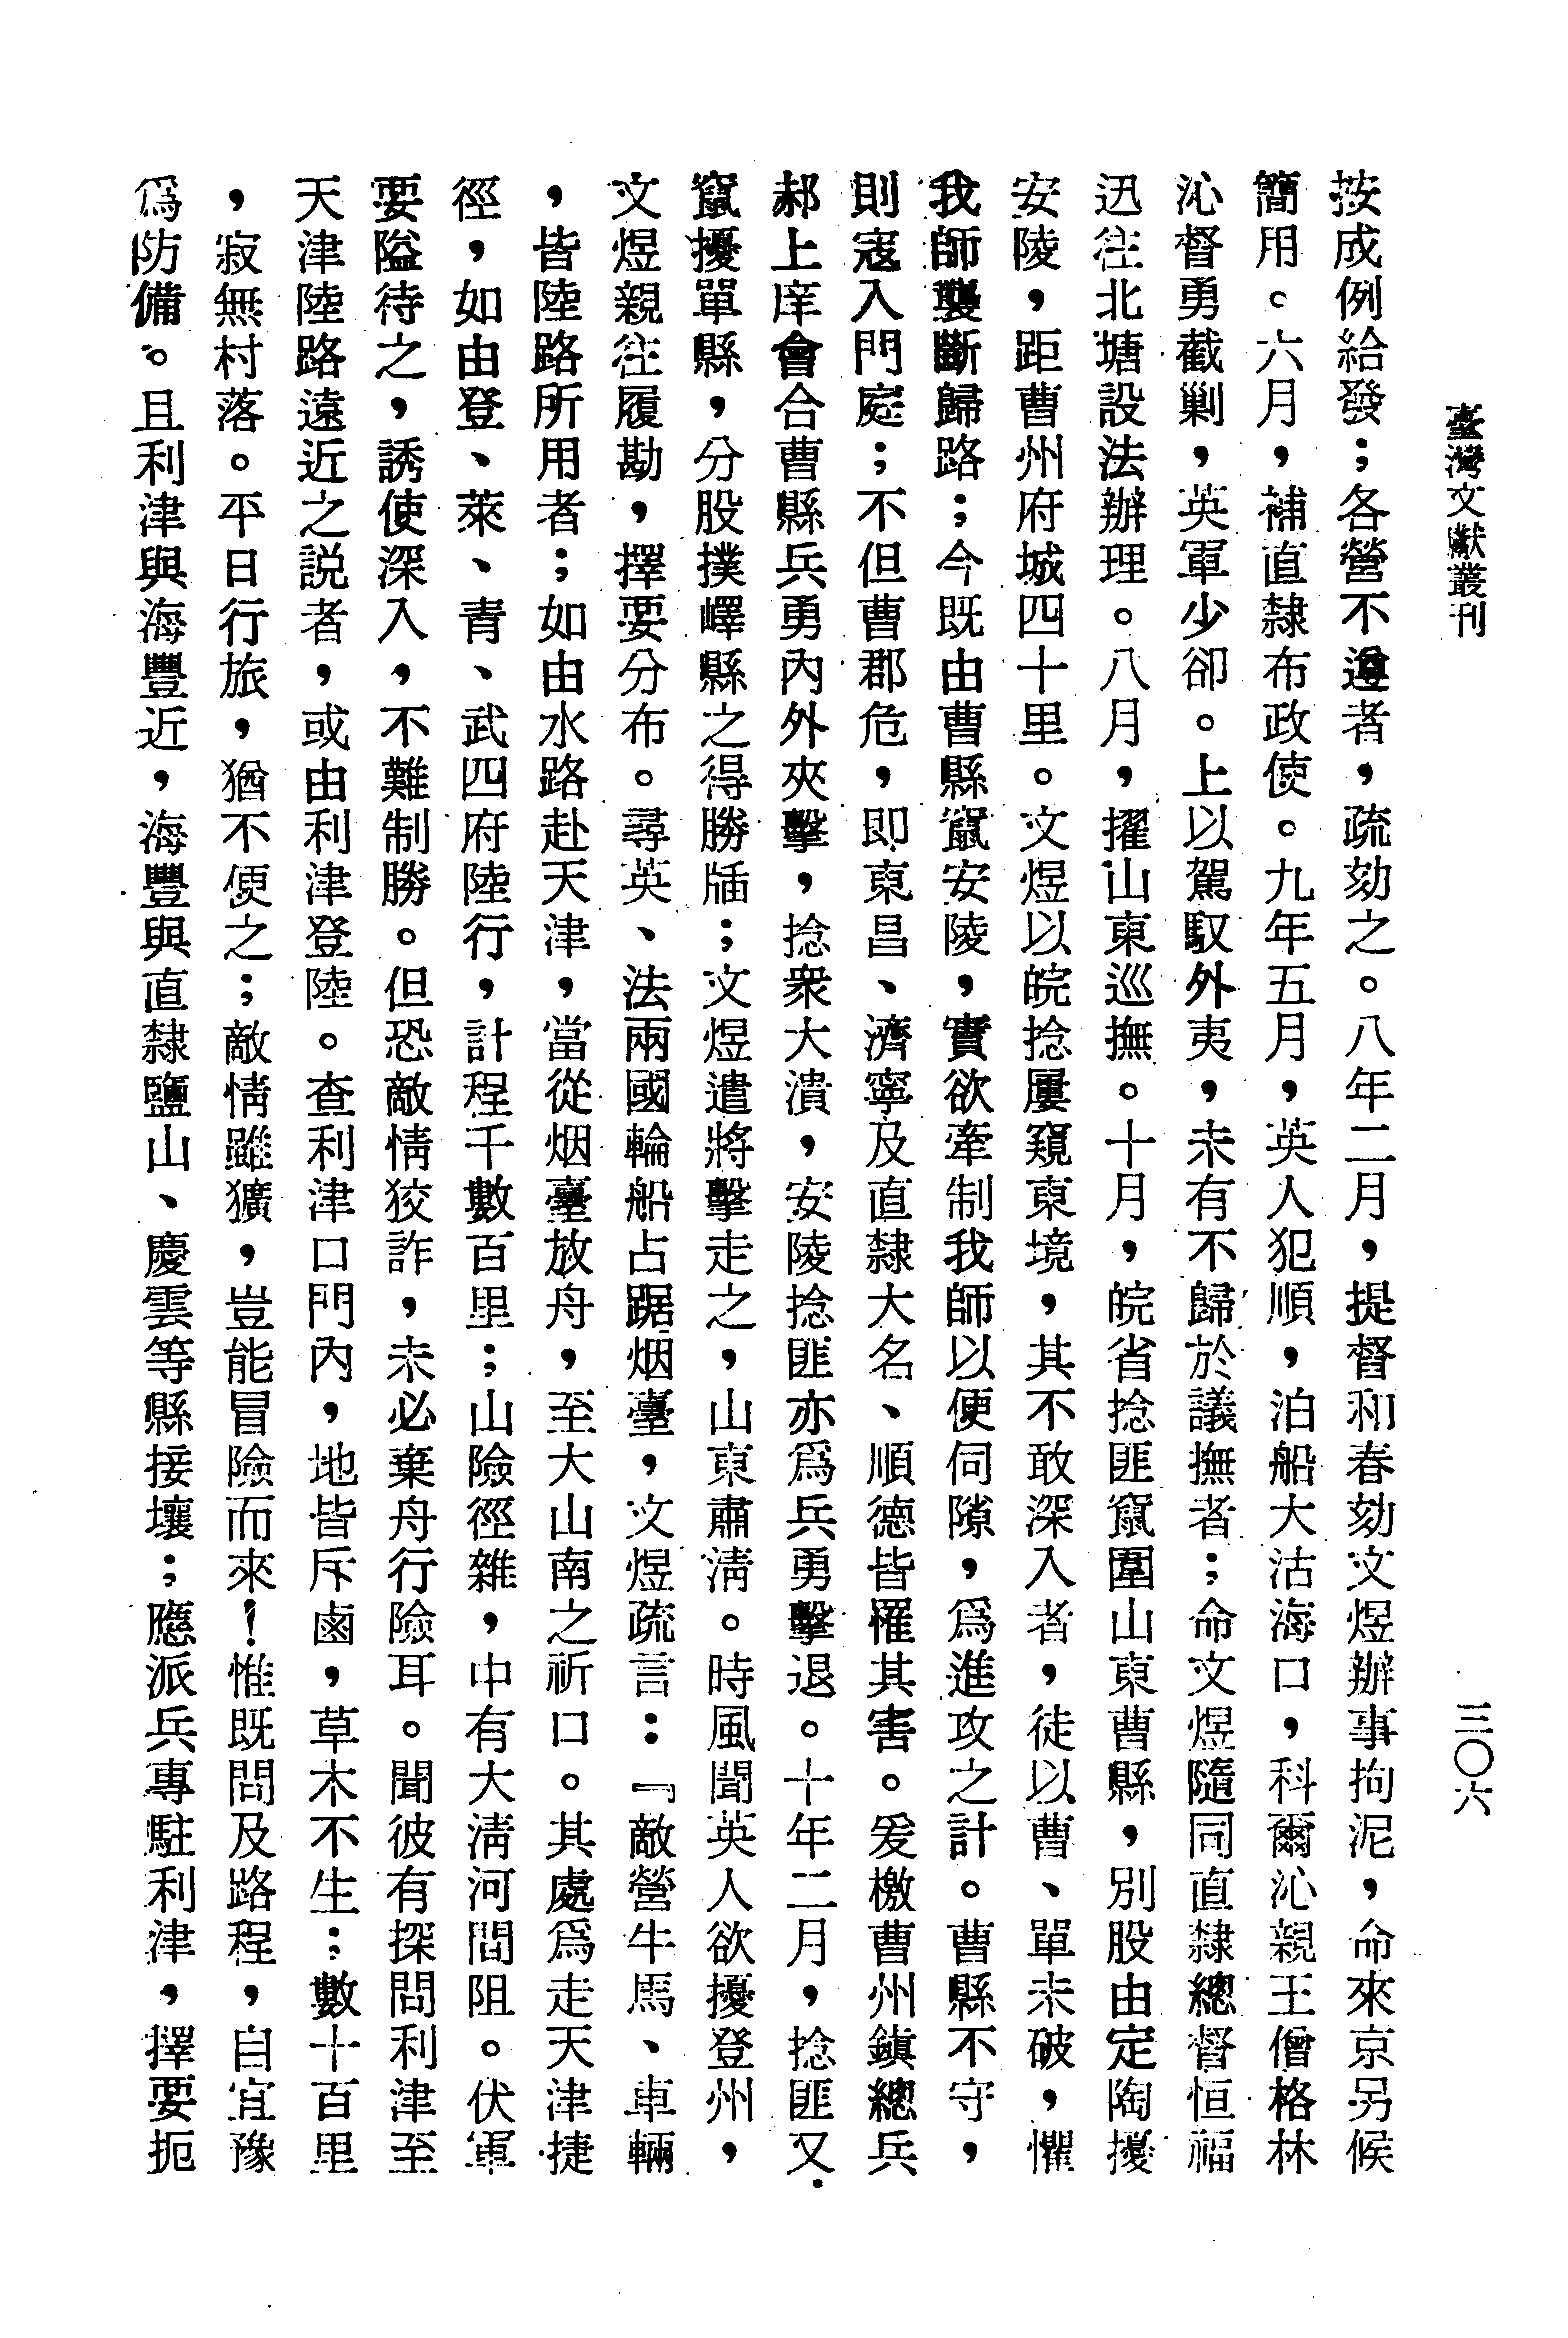 臺灣文獻叢刊
三〇六
按成例給發；各營不遵者，疏劾之。八年二月，提督和春劾文煜辦事拘泥，命來京另候
簡用。六月，補直隸布政使。九年五月，英人犯順，泊船大沽海口，科爾沁親王僧格林
沁督勇截剿，英軍少卻。上以駕馭外夷，未有不歸於議撫者；命文煜隨同直隸總督恒福
迅往北塘設法辦理。八月，擢山東巡撫。十月，皖省捻匪竄圍山東曹縣，別股由定陶擾
安陵，距曹州府城四十里。文煜以皖捻屢窺東境，其不敢深入者，徒以曹、單未破，懼
我師襲斷歸路；今既由曹縣竄安陵，實欲牽制我師以便伺隙，爲進攻之計。曹縣不守，
則寇入門庭；不但曹郡危，即東昌、濟寧及直隸大名、順德皆罹其害。爰檄曹州鎮總兵
郝上庠會合曹縣兵勇內外夾擊，捻衆大潰，安陵捻匪亦爲兵勇擊退。十年二月，捻匪又
竄擾單縣，分股撲嶧縣之得勝牐；文煜遣將擊走之，山東肅清。時風聞英人欲擾登州，
文煜親往履勘，擇要分布。尋英、法兩國輪船占踞烟臺，文煜疏言：『敵營牛馬、車輛
，皆陸路所用者；如由水路赴天津，當從烟臺放舟，至大山南之祈口。其處爲走天津捷
徑，如由登、萊、青、武四府陸行，計程千數百里；山險徑雜，中有大清河間阻。伏軍
要隘待之，誘使深入，不難制勝。但恐敵情狡詐，未必棄舟行險耳。聞彼有探問利津至
天津陸路遠近之說者，或由利津登陸。查利津口門內，地皆斥鹵，草木不生；數十百里
，寂無村落。平日行旅，猶不便之；敵情雖獷，豈能冒險而來！惟既問及路程，自宜豫
爲防備。且利津與海豐近，海豐與直隸鹽山、慶雲等縣接壤；應派兵專駐利津，擇要扼